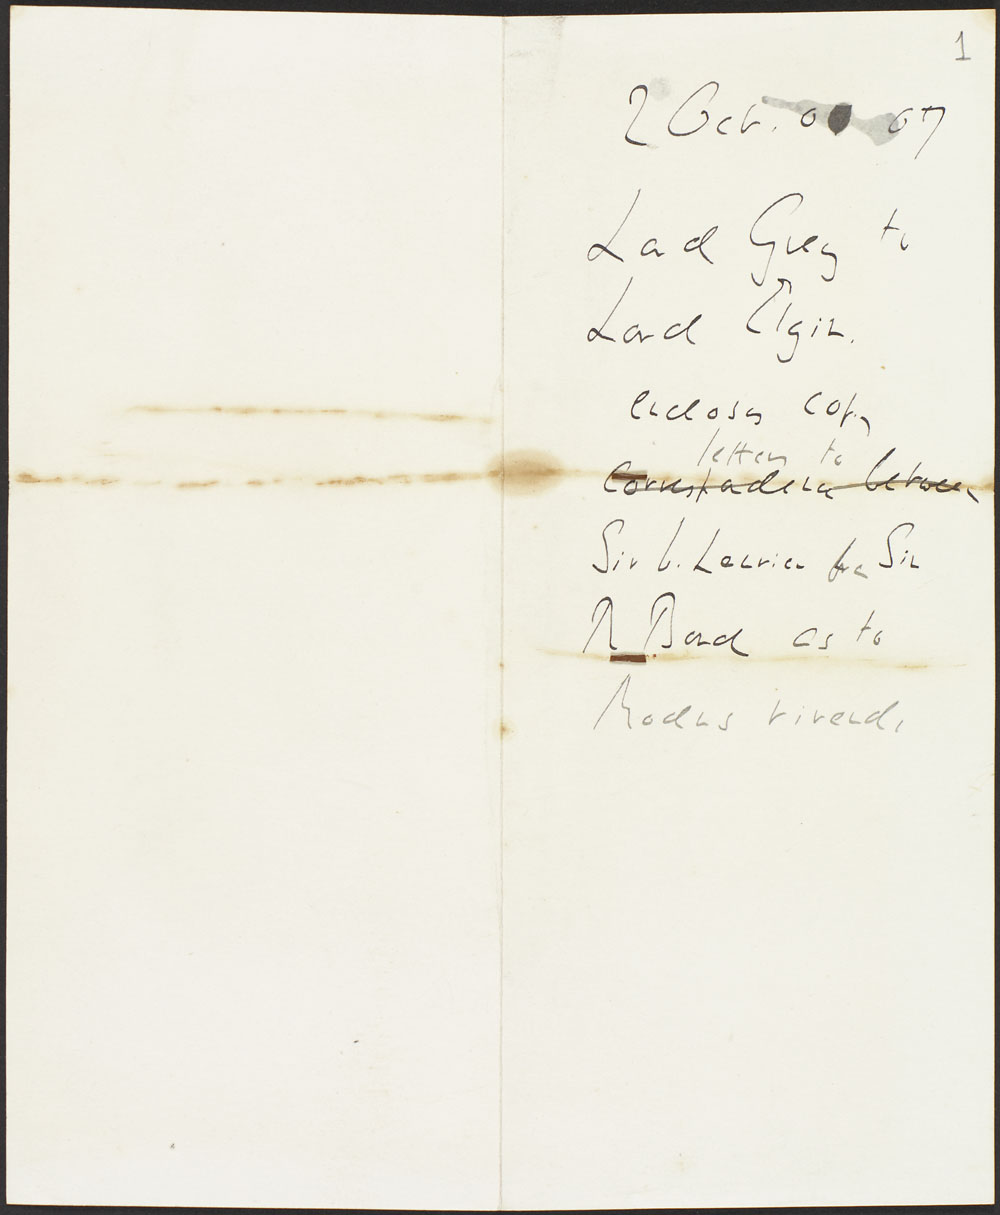 1
2 Oct. 0 07
Lord Grey to
Lord Elgin.
encloses copy
letters to
Correspondence between
Sir W. Laurier fr Sir
R Bond as to
Modus vivendi